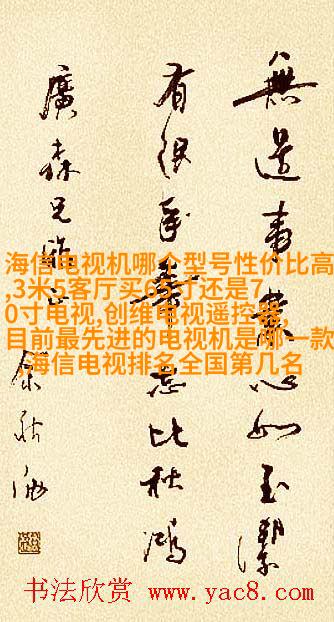 無邊事業心如玉潔
有限年華志比秋鴻
廣森兄雅正
余秋雨
海信电视机哪个型号性价比高
,3米5客厅买65寸还是7
0寸电视,创维电视遥控器,
目前最先进的电视机是哪一款
,海信电视排名全国第几名
书法欣赏 www.yac8.com